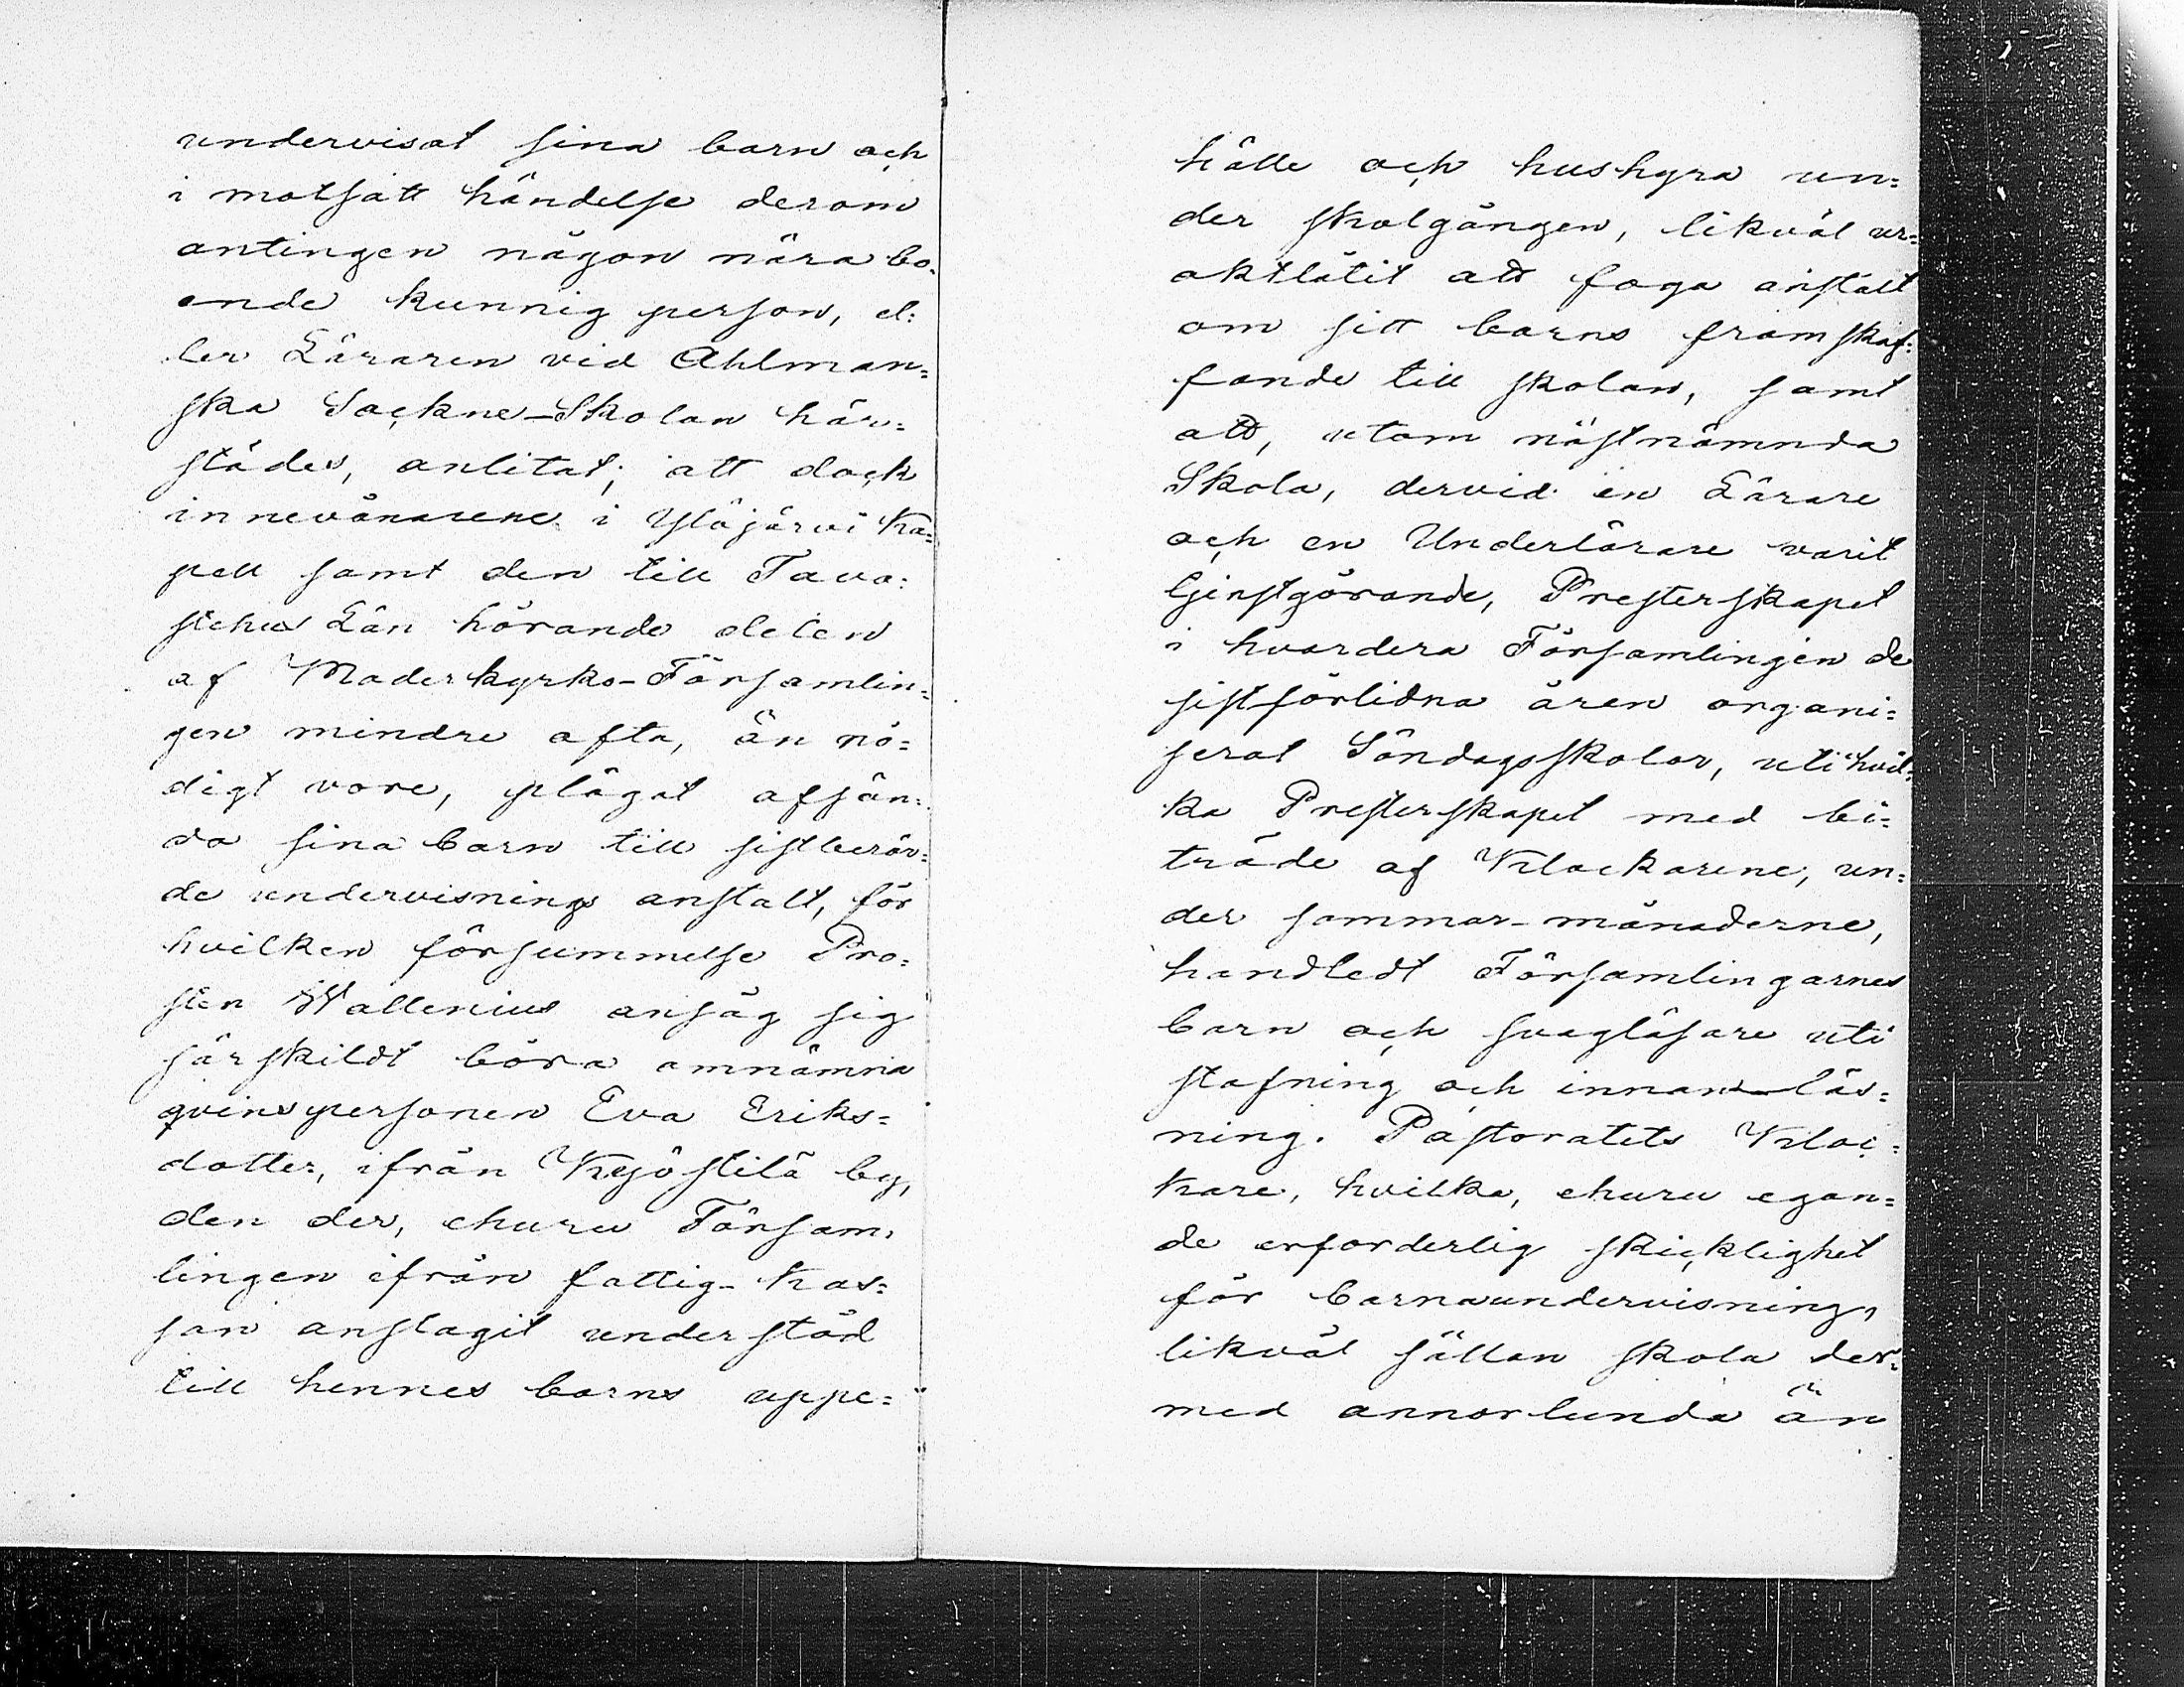 undervisat sina barn och
i motsatt händelse derom
antingen någon nära bo-
ende kunnig person, el=
ler Läraren vid Ahlman=
ska Sockne-Skolan här=
städes, anlitat; att dock
innevånarene i Ylöjärvi Ka=
pell samt den till Tava=
stehus Län hörande delen
af Moderkyrko-Församlin=
gen mindre ofta, än nö=
digt vore, plägat afsän=
da sina barn till sistberör=
de undervisnings anstalt, för
hvilken försummelse Pro=
sten Wallenius ansåg sig
särskildt böra omnämna
qvinspersonen Eva Eriks=
dotter, ifrån Kyöstilä by,
den der, ehuru Försam-
lingen ifrån fattig-kas=
san anslagit understöd
till hennes barns uppe=
hälle och hushyra un=
der skolgången, likväl ur=
aktlåtit att foga anstalt
om sitt barns framskaf=
fande till skolan, samt
att, utom nästnämnda
Skola, dervid en Lärare
och en Underlärare varit
tjenstgörande, Presterskapet
i hvardera Församlingen de
sistförlidna åren organi=
serat Söndagsskolor, uti hvil=
ka Presterskapet med bi=
träde af Klockarene, un=
der sommar-månaderne,
handledt Församlingarnes
barn och svagläsare uti
stafning och innanläs=
ning. Pastoratets Kloc=
kare, hvilka, ehuru egan=
de erforderlig skicklighet
för barnaundervisning,
likväl sällan skola der=
med annorlunda än